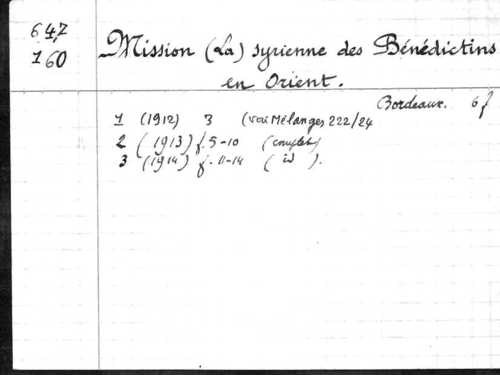 647
160
Mission (La) syrienne des Bénédictins
en Orient.
Bordeaux. 6 f
1 (1912) 3 (voir Mélanges 222/24
2 (1913) f. 5-10 (complet)
3 (1914) f. 11-14 ( id ).